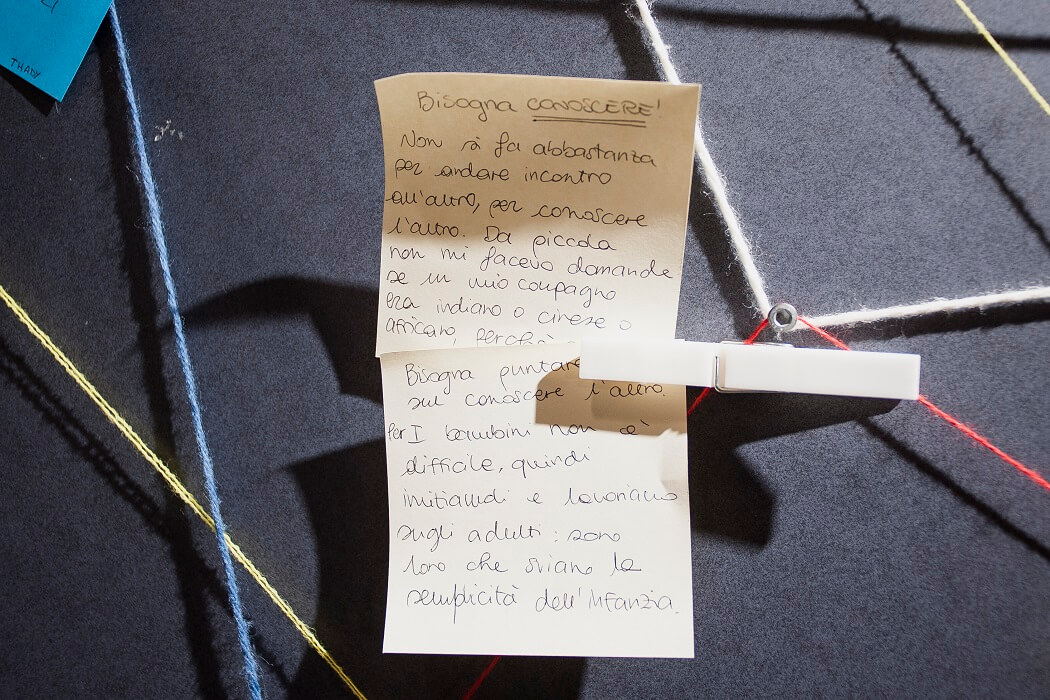 THADY
Bisogna CONOSCERE!
Non si fa abbastanza
per andare incontro
all'altro, per conoscere
l'altro. Da piccola
non mi facevo domande
se un mio compagno
era indiano o cinese o
africano, perchè
Bisogna puntare
sul conoscere l'altro.
Per I bambini non è
difficile, quindi
imitiamoli e lavoriamo
sugli adulti: sono
loro che sviano la
semplicità dell'infanzia.